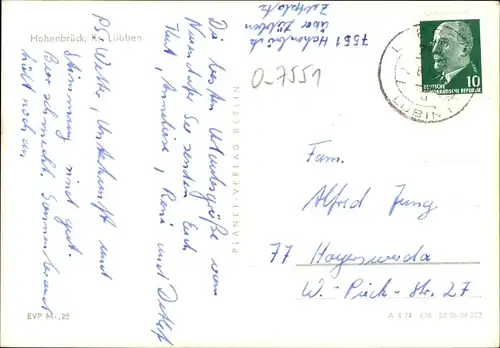 Hohenbrück, Kr. Lübben
7551 Hohenbrück
über Lübben
Zeltplatz
O-7551
DEUTSCHE
DEMOKRATISCHE REPUBLIK
10
LÜBBEN
Die besten Urlaubsgrüße vom
Neuendorfer See senden Euch
Kurt, Anneliese, René und Detlef
PS: Wetter, Unterkunft und
Stimmung sind gut.
Bier schmeckt. Sonnenbrand
hält noch an
PLANET-VERLAG BERLIN
Fam.
Alfred Jung
77 Hoyerswerda
W.-Pieck-Str. 27
EVP M -,25
A 4-74 606 02 06 09 003